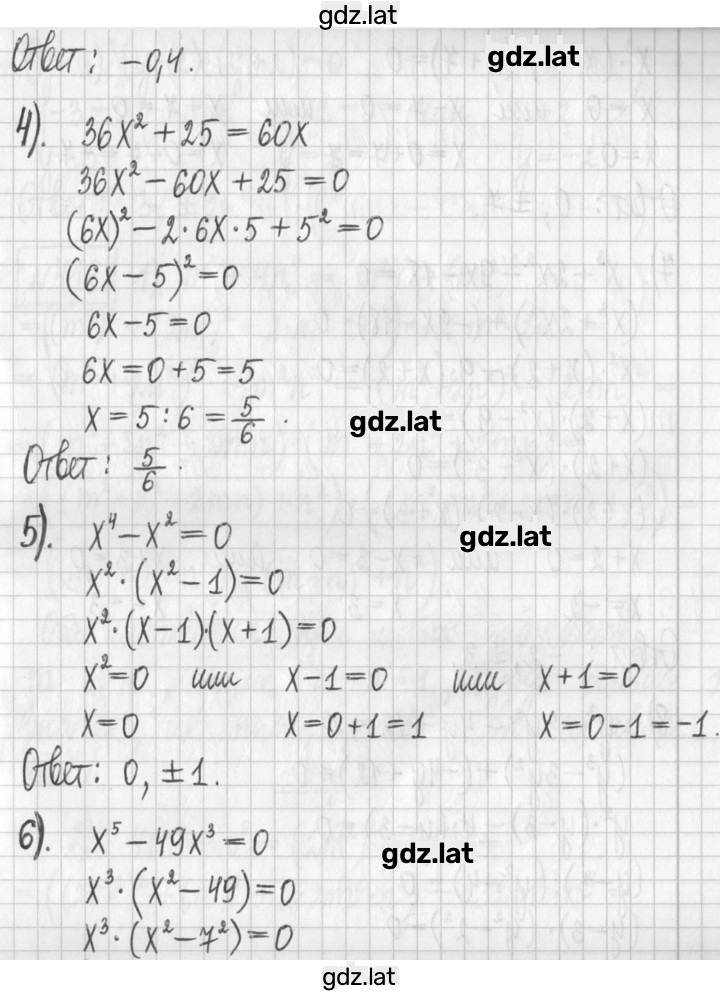 gdz.lat
Ответ: -0,4. gdz.lat
4). 36x² + 25 = 60x
36x² - 60x + 25 = 0
(6x)² - 2·6x·5 + 5² = 0
(6x - 5)² = 0
6x - 5 = 0
6x = 0 + 5 = 5
x = 5 : 6 = 5/6 . gdz.lat
Ответ: 5/6 .
5). x⁴ - x² = 0 gdz.lat
x²·(x² - 1) = 0
x²·(x - 1)·(x + 1) = 0
x² = 0 или x - 1 = 0 или x + 1 = 0
x = 0 x = 0 + 1 = 1 x = 0 - 1 = -1.
Ответ: 0, ±1.
6). x⁵ - 49x³ = 0 gdz.lat
x³·(x² - 49) = 0
x³·(x² - 7²) = 0
gdz.lat